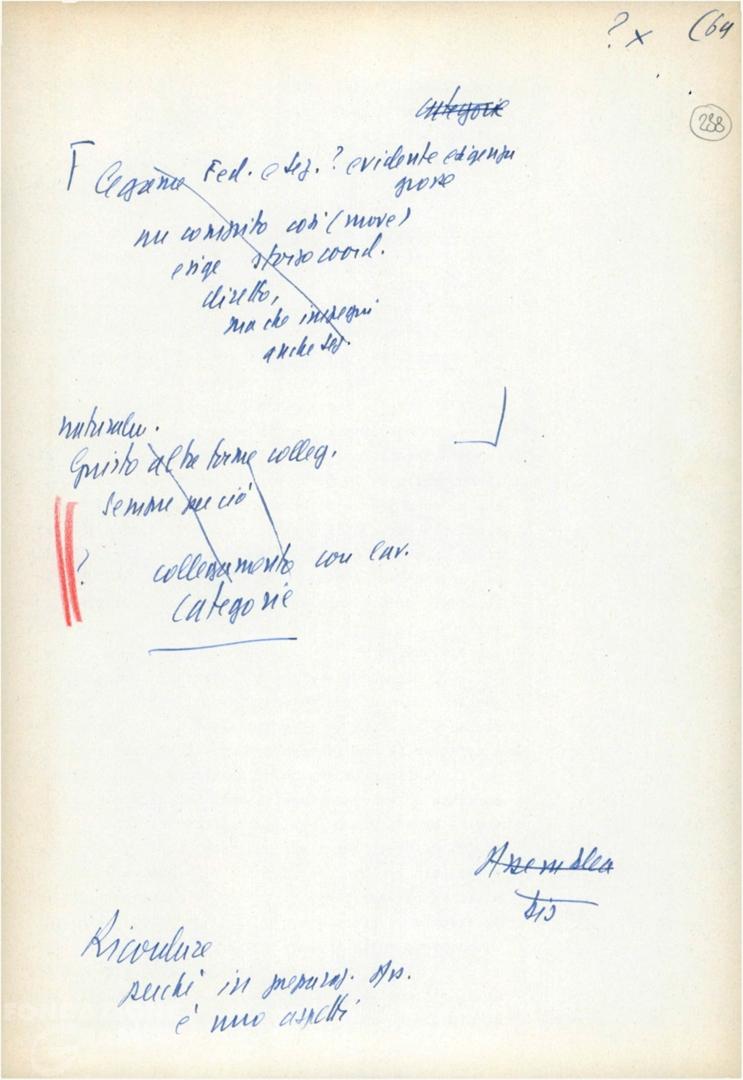 ? x (64
288
categorie
Legame Fed. e sez. ? evidente esigenza
grosse
ma compito così (nuove)
esige sforzo coord.
diretto,
ma che impegni
anche sez.
naturalm.
Giusto altre forme colleg.
sempre più ciò
?
collegamento con lav.
categorie
Assemblea
Ricordare
perché in preparaz. Ass.
è uno aspetti